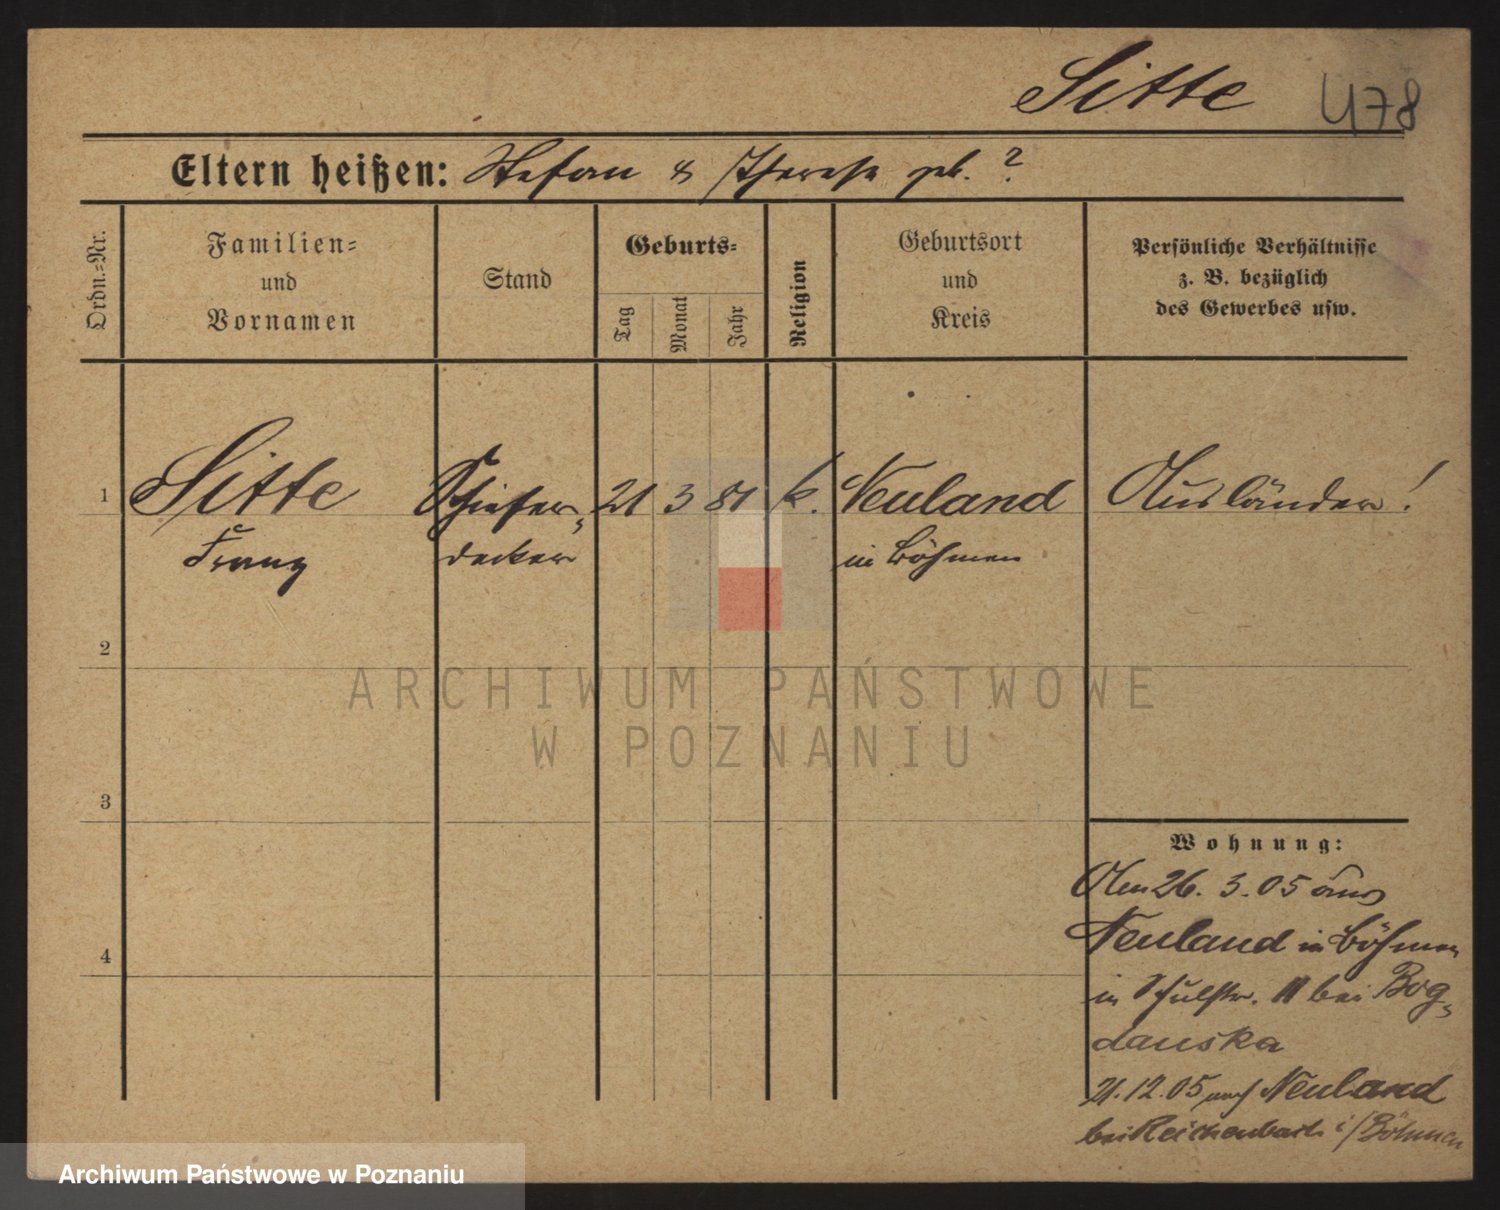 Sitte 478
Eltern heißen: Stefan & Therese geb. ?
Ordn.=Nr.
Familien=
und
Vornamen
Stand
Geburts=
Tag
Monat
Jahr
Religion
Geburtsort
und
Kreis
Persönliche Verhältnisse
z. B. bezüglich
des Gewerbes usw.
1 Sitte Schiefer= 21 3 81 k. Neuland Ausländer!
Franz decker in Böhmen
2
ARCHIWUM PAŃSTWOWE
W POZNANIU
3
Wohnung:
Den 26. 3. 05 aus
Neuland in Böhmen
4
in Schulstr. 11 bei Bog=
danska
21.12.05 nach Neuland
bei Reichenbach i/Böhmen
Archiwum Państwowe w Poznaniu